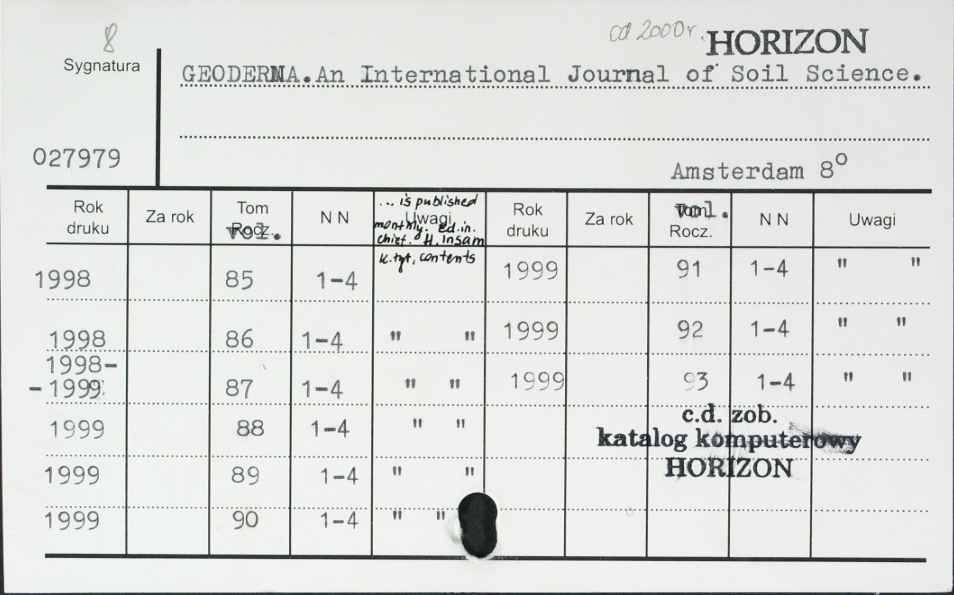 8
od 2000r. HORIZON
Sygnatura
GEODERMA. An International Journal of Soil Science.
027979
Amsterdam 8°
Rok druku Za rok Tom Rocz. vol. N N Uwagi Rok druku Za rok Tom Rocz. vol. N N Uwagi
... is published
monthly. ed. in.
chief. H. Insam
k. tyt, contents
1998 85 1-4 1999 91 1-4 " "
1998 86 1-4 " " 1999 92 1-4 " "
1998-
-1999 87 1-4 " " 1999 93 1-4 " "
1999 88 1-4 " "
c.d. zob.
katalog komputerowy
HORIZON
1999 89 1-4 " "
1999 90 1-4 " "